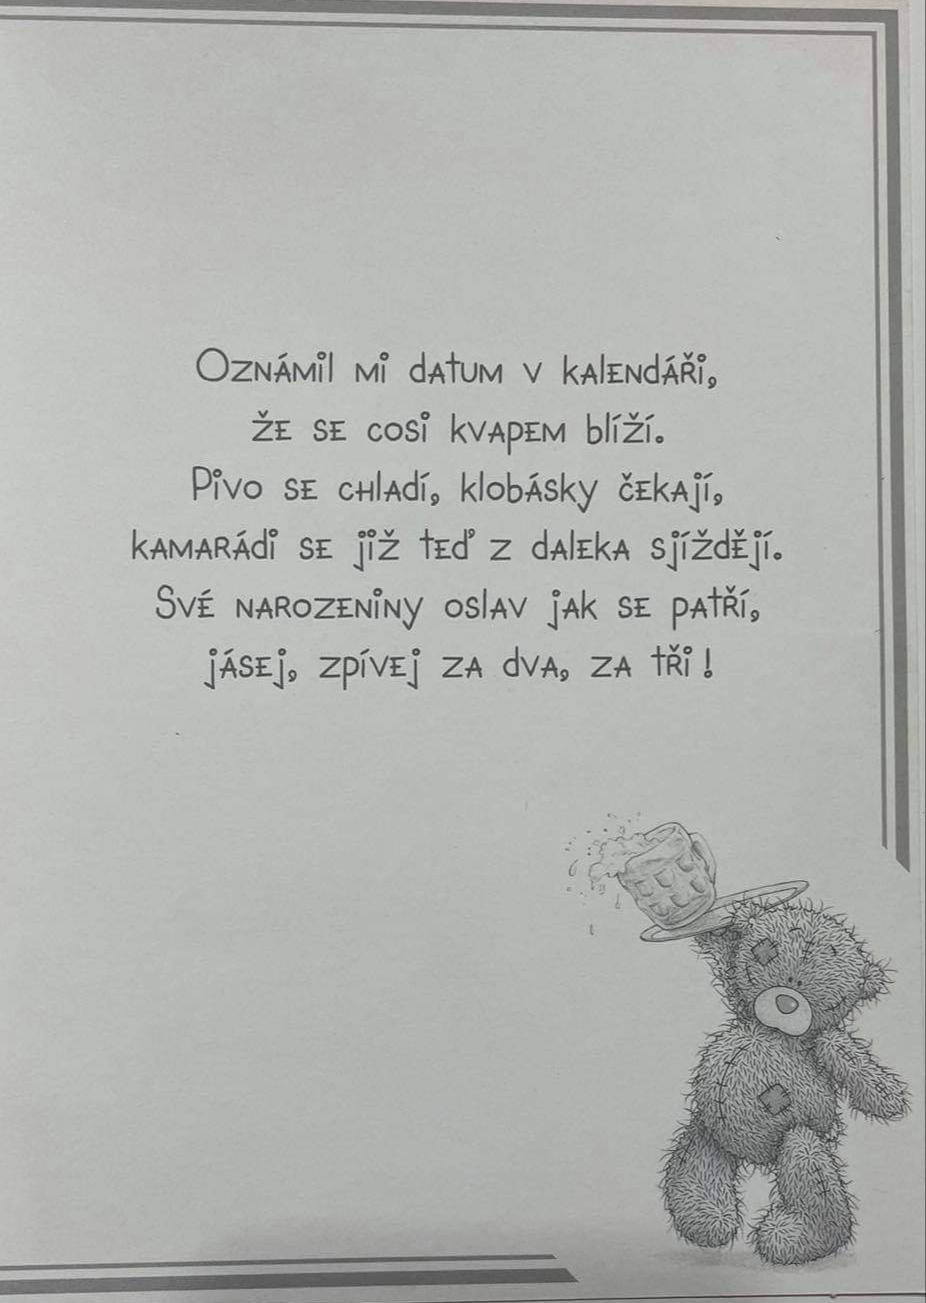 Oznámil mi datum v kalendáři,
že se cosi kvapem blíží.
Pivo se chladí, klobásky čekají,
kamarádi se již teď z daleka sjíždějí.
Své narozeniny oslav jak se patří,
jásej, zpívej za dva, za tři !